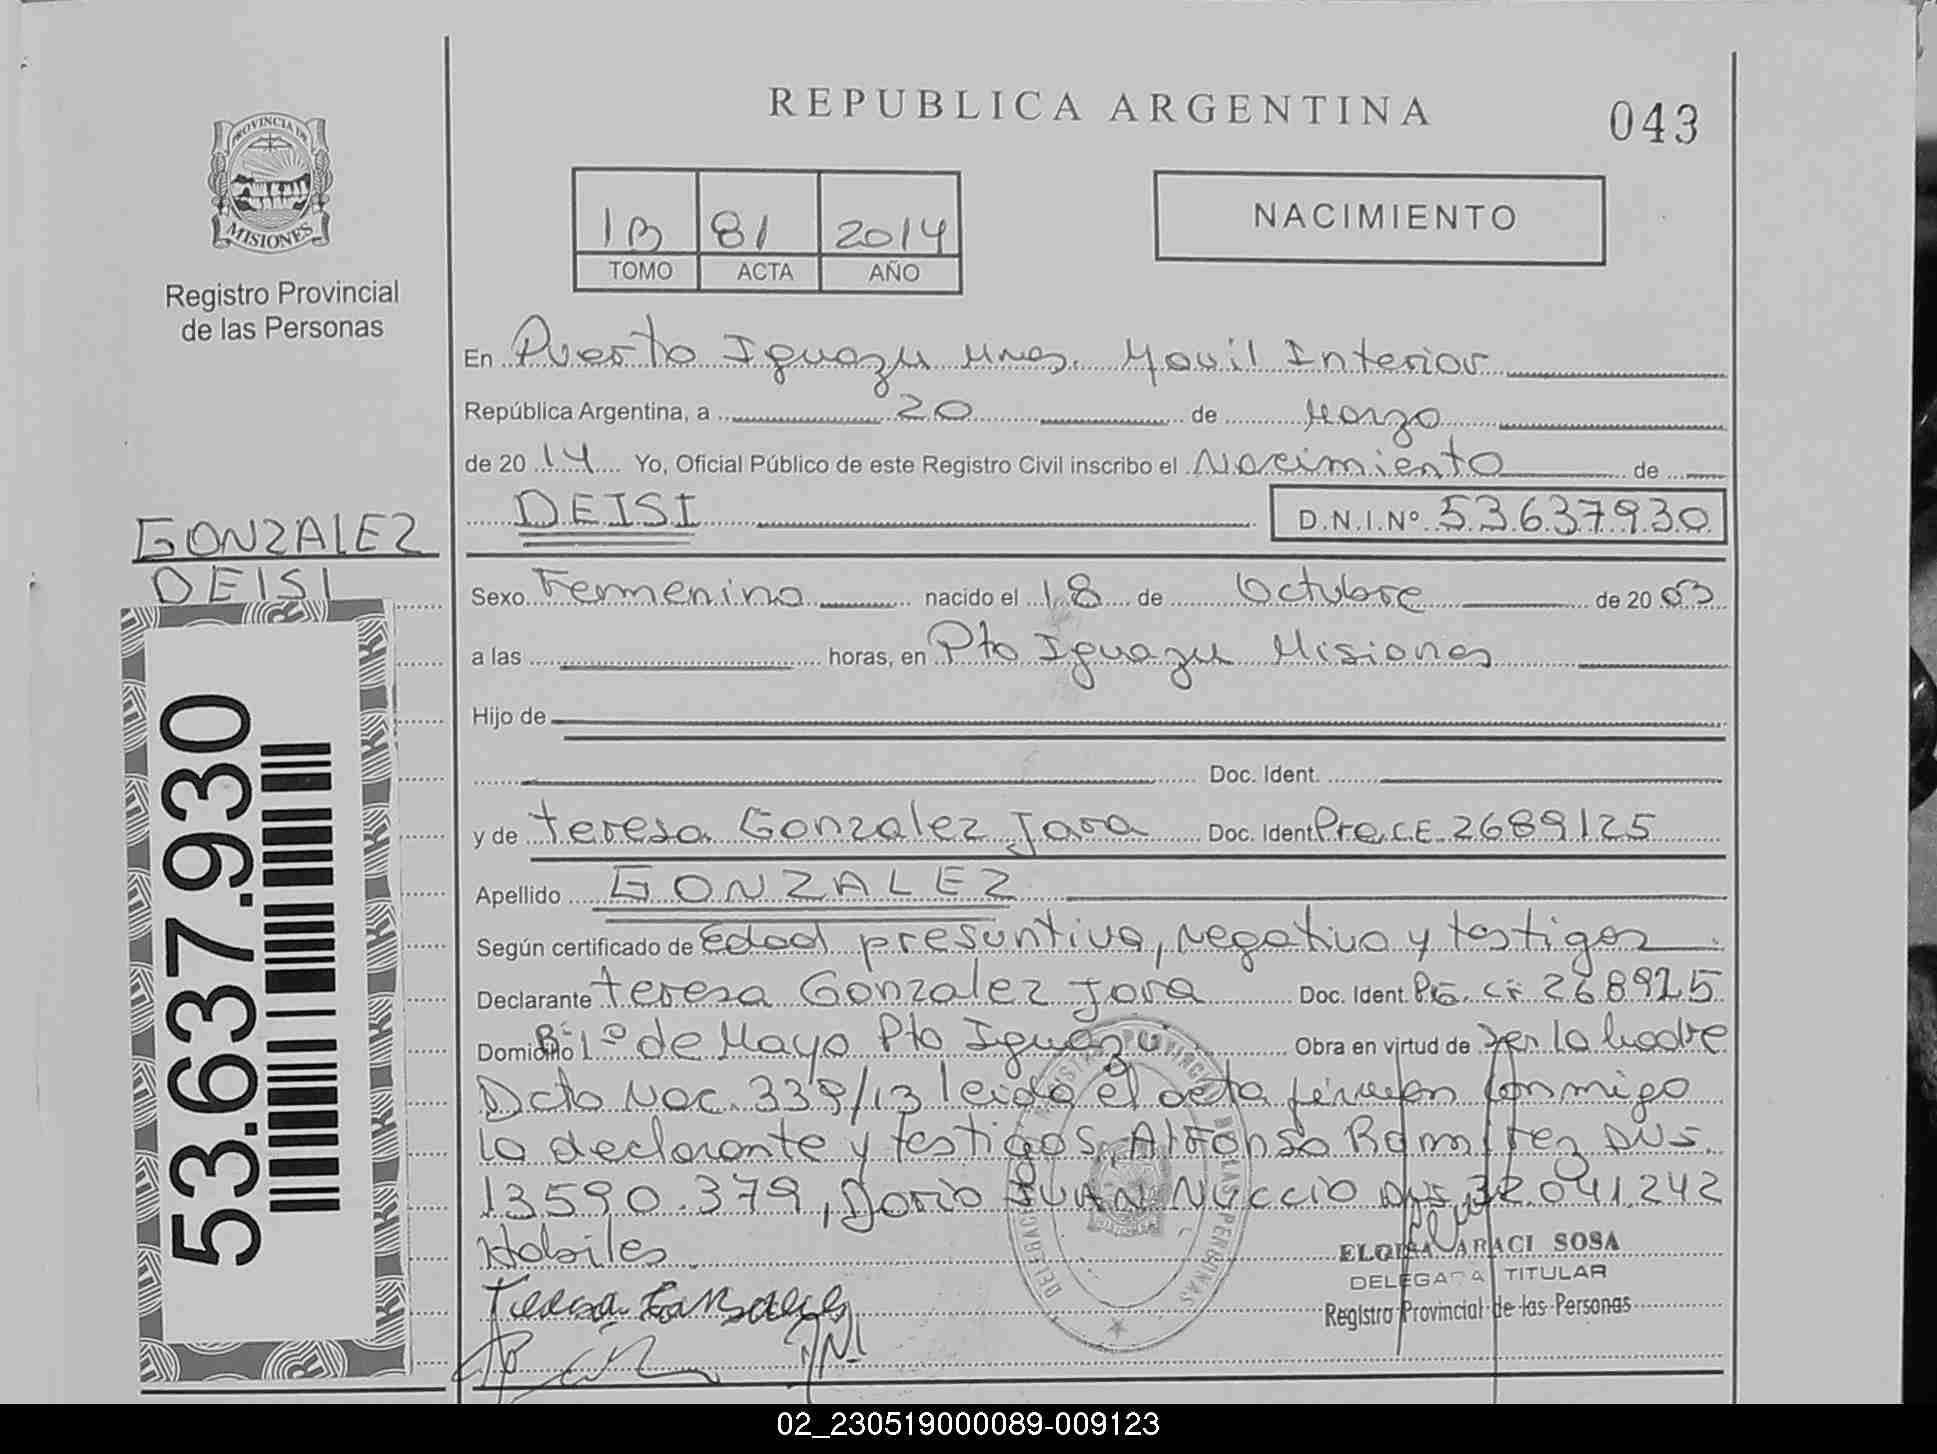 REPUBLICA ARGENTINA
043
PROVINCIA DE
MISIONES
Registro Provincial
de las Personas
1B 81 2014
TOMO ACTA AÑO
NACIMIENTO
En Puerto Iguazu Mnes. Movil Interior
República Argentina, a 20 de Marzo
de 2014 Yo, Oficial Público de este Registro Civil inscribo el Nacimiento de
DEISI D.N.I.Nº 53.637.930
GONZALEZ
DEISI
53.637.930
Sexo Femenino nacido el 18 de Octubre de 2003
a las horas, en Pto Iguazu Misiones
Hijo de
Doc. Ident.
y de Teresa Gonzalez Jara Doc. Ident. C.E. 2689125
Apellido GONZALEZ
Según certificado de Edad presuntiva, negativa y testigos
Declarante Teresa Gonzalez Jara Doc. Ident. 268925
Domicilio Bº 1º de Mayo Pto Iguazu Obra en virtud de ser la madre
Dcto Nac. 339/13 leida el acta firman conmigo
la declarante y testigos, Alfonso Ramirez DNI.
13590.379, Dario JUAN NUCCIO DNI 32.041.242
Habiles
Teresa Gonzalez
ELOISA ARACI SOSA
DELEGADA TITULAR
Registro Provincial de las Personas
02_230519000089-009123